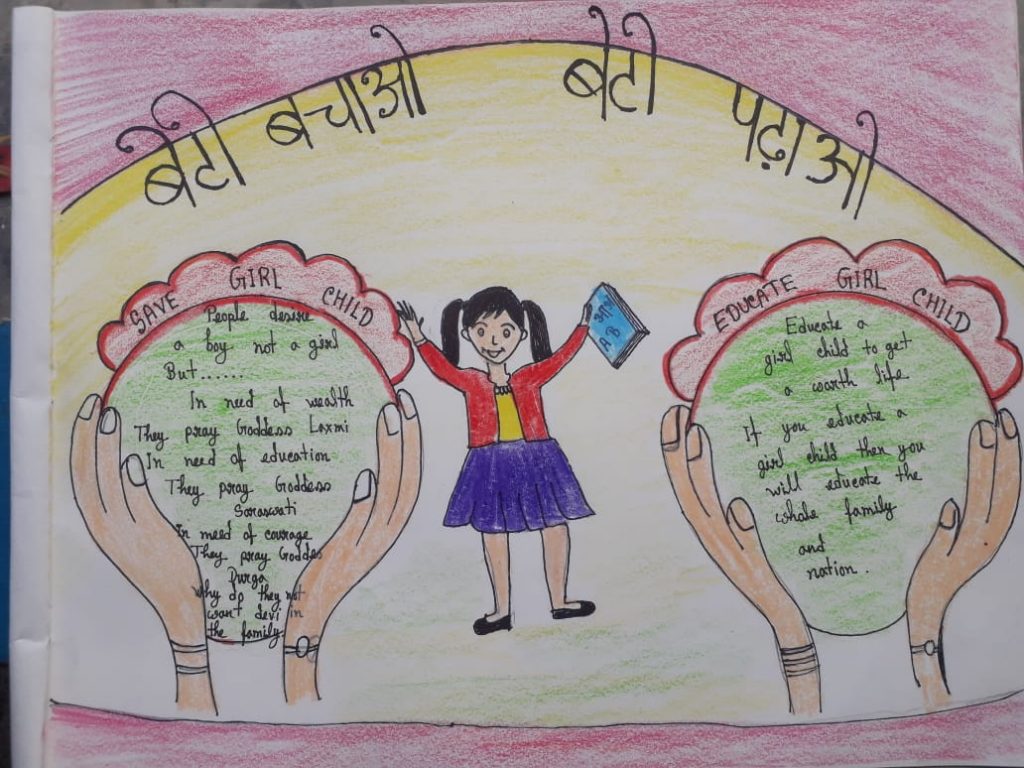 बेटी बचाओ बेटी पढ़ाओ
SAVE GIRL CHILD
People desire
a boy not a girl
But......
In need of wealth
They pray Goddess Laxmi
In need of education
They pray Goddess
Saraswati
In need of courage
They pray Goddes
Durga
Why do they not
want devi in
the family
अआ
A B
EDUCATE GIRL CHILD
Educate a
girl child to get
a worth life
If you educate a
girl child then you
will educate the
whole family
and
nation.